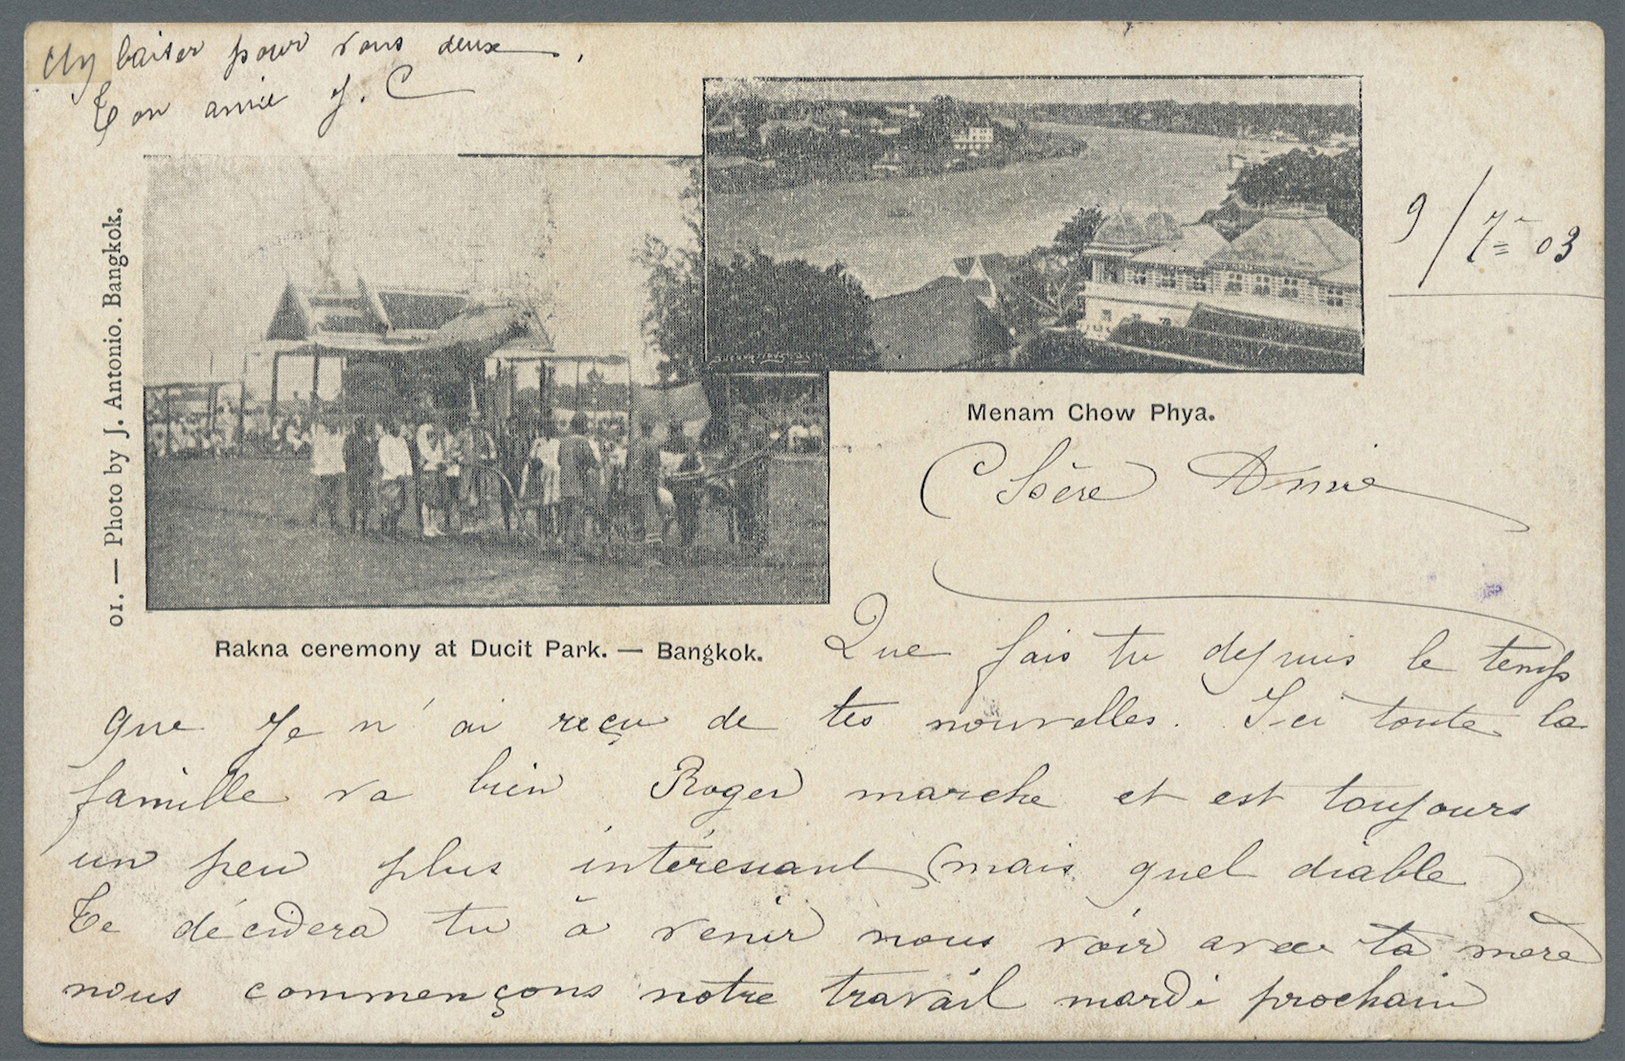 Un baiser pour vous deux.
Ton amie J. C
01. — Photo by J. Antonio. Bangkok.
9/7= 03
Menam Chow Phya.
Rakna ceremony at Ducit Park. — Bangkok.
Chère Annie
Que fais tu depuis le temps
que Je n'ai reçu de tes nouvelles. Ici toute la
famille va bien Roger marche et est toujours
un peu plus intéressant (mais quel diable)
Te décidera tu à venir nous voir avec ta mère
nous commençons notre travail mardi prochain